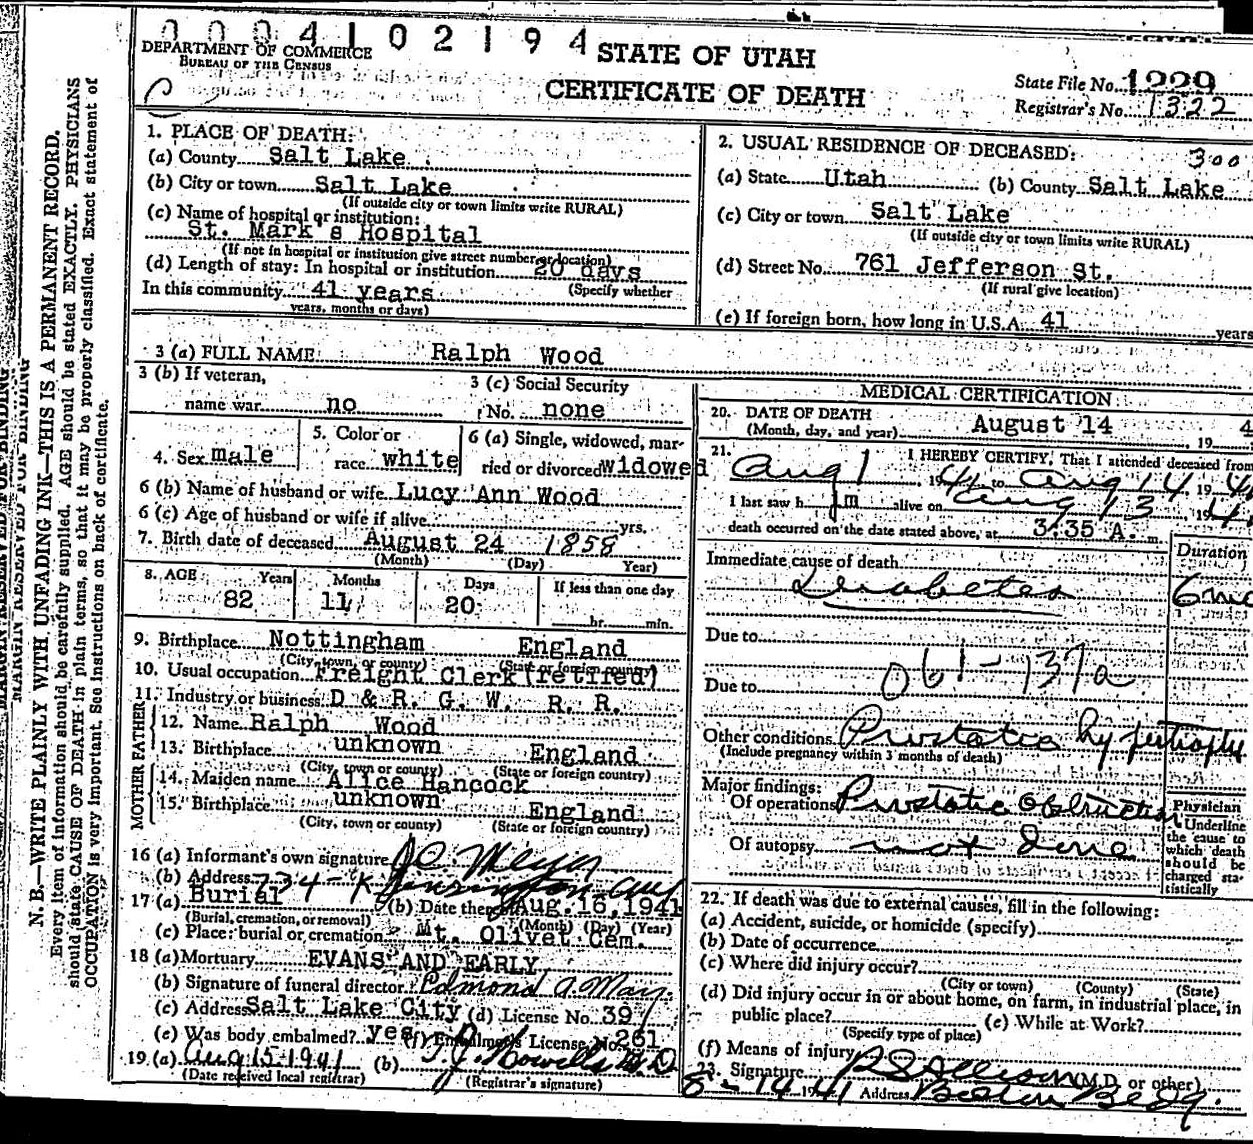 0 0 0 4 1 0 2 1 9 4
DEPARTMENT OF COMMERCE
BUREAU OF THE CENSUS
STATE OF UTAH
CERTIFICATE OF DEATH
State File No. 1229
Registrar's No. 1322
MARGIN RESERVED FOR BINDING
N. B.—WRITE PLAINLY WITH UNFADING INK—THIS IS A PERMANENT RECORD.
Every item of information should be carefully supplied. AGE should be stated EXACTLY. PHYSICIANS
should state CAUSE OF DEATH in plain terms, so that it may be properly classified. Exact statement of
OCCUPATION is very important. See instructions on back of certificate.
1. PLACE OF DEATH:
(a) County Salt Lake
(b) City or town Salt Lake
(If outside city or town limits write RURAL)
(c) Name of hospital or institution:
St. Mark's Hospital
(If not in hospital or institution give street number or location)
(d) Length of stay: In hospital or institution 20 days
In this community 41 years (Specify whether
years, months or days)
2. USUAL RESIDENCE OF DECEASED: 300
(a) State Utah (b) County Salt Lake
(c) City or town Salt Lake
(If outside city or town limits write RURAL)
(d) Street No. 761 Jefferson St.
(If rural give location)
(e) If foreign born, how long in U.S.A. 41 years
3 (a) FULL NAME Ralph Wood
3 (b) If veteran, name war no
3 (c) Social Security No. none
4. Sex male
5. Color or race white
6 (a) Single, widowed, married or divorced widowed
6 (b) Name of husband or wife Lucy Ann Wood
6 (c) Age of husband or wife if alive yrs.
7. Birth date of deceased August 24 1858
(Month) (Day) Year)
8. AGE Years Months Days If less than one day
82 11 20 hr. min.
9. Birthplace Nottingham England
(City, town, or county) (State or foreign country)
10. Usual occupation Freight Clerk (retired)
11. Industry or business D & R. G. W. R. R.
FATHER
12. Name Ralph Wood
13. Birthplace unknown England
(City, town or county) (State or foreign country)
MOTHER
14. Maiden name Alice Hancock
15. Birthplace unknown England
(City, town or county) (State or foreign country)
16 (a) Informant's own signature J.C. Meyer
(b) Address 734 Kensington Ave
17 (a) Burial (b) Date thereof Aug. 16, 1941
(Burial, cremation, or removal) (Month) (Day) (Year)
(c) Place: burial or cremation Mt. Olivet Cem.
18 (a) Mortuary EVANS AND EARLY
(b) Signature of funeral director Edmond
(c) Address Salt Lake City (d) License No. 397
(e) Was body embalmed? yes (f) Embalmer's License No. 261
19. (a) Aug 15-1941 (b) T. J. Howells M.D
(Date received local registrar) (Registrar's signature)
MEDICAL CERTIFICATION
20. DATE OF DEATH
(Month, day, and year) August 14, 19 4
21. I HEREBY CERTIFY, That I attended deceased from
Aug 1 1941 to Aug 14, 19 4
I last saw h im alive on Aug 13 1941
death occurred on the date stated above, at 3:35 A. m.
Immediate cause of death Duration
Diabetes 6 mo
Due to
061-137a
Due to
Other conditions Prostatic hypertrophy
(Include pregnancy within 3 months of death)
Major findings:
Of operations Prostatic Obstruction
Of autopsy not done
Physician
Underline the cause to which death should be charged statistically
22. If death was due to external causes, fill in the following:
(a) Accident, suicide, or homicide (specify)
(b) Date of occurrence
(c) Where did injury occur?
(City or town) (County) (State)
(d) Did injury occur in or about home, on farm, in industrial place, in
public place? (e) While at Work?
(Specify type of place)
(f) Means of injury
23. Signature (M.D. or other)
8-14 1941 Address